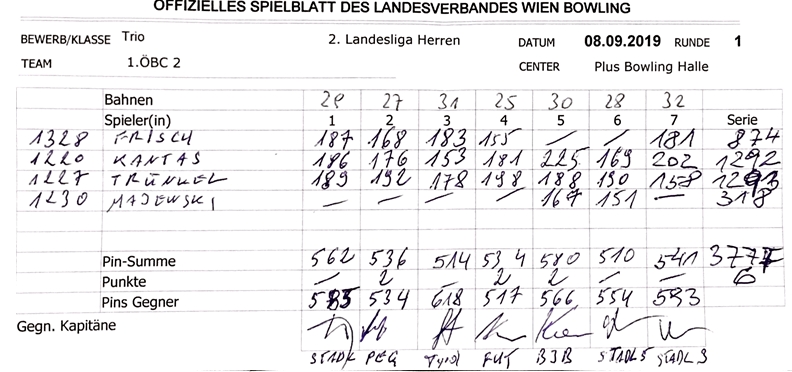 OFFIZIELLES SPIELBLATT DES LANDESVERBANDES WIEN BOWLING
BEWERB/KLASSE Trio 2. Landesliga Herren DATUM 08.09.2019 RUNDE 1
TEAM 1.ÖBC 2 CENTER Plus Bowling Halle
Bahnen 29 27 31 25 30 28 32
Spieler(in) 1 2 3 4 5 6 7 Serie
1328 FRISCH 187 168 183 155 — — 181 874
1220 KANTAS 186 176 153 181 225 169 202 1292
1227 TRÜNKEL 189 192 178 198 188 190 158 1293
1230 MAJEWSKI — — — — 167 151 — 318
Pin-Summe 562 536 514 534 580 510 541 3777
Punkte — 2 — 2 2 — — 6
Pins Gegner 585 534 618 517 566 554 593
Gegn. Kapitäne
PEG FUT B3B STADL5 STADL3